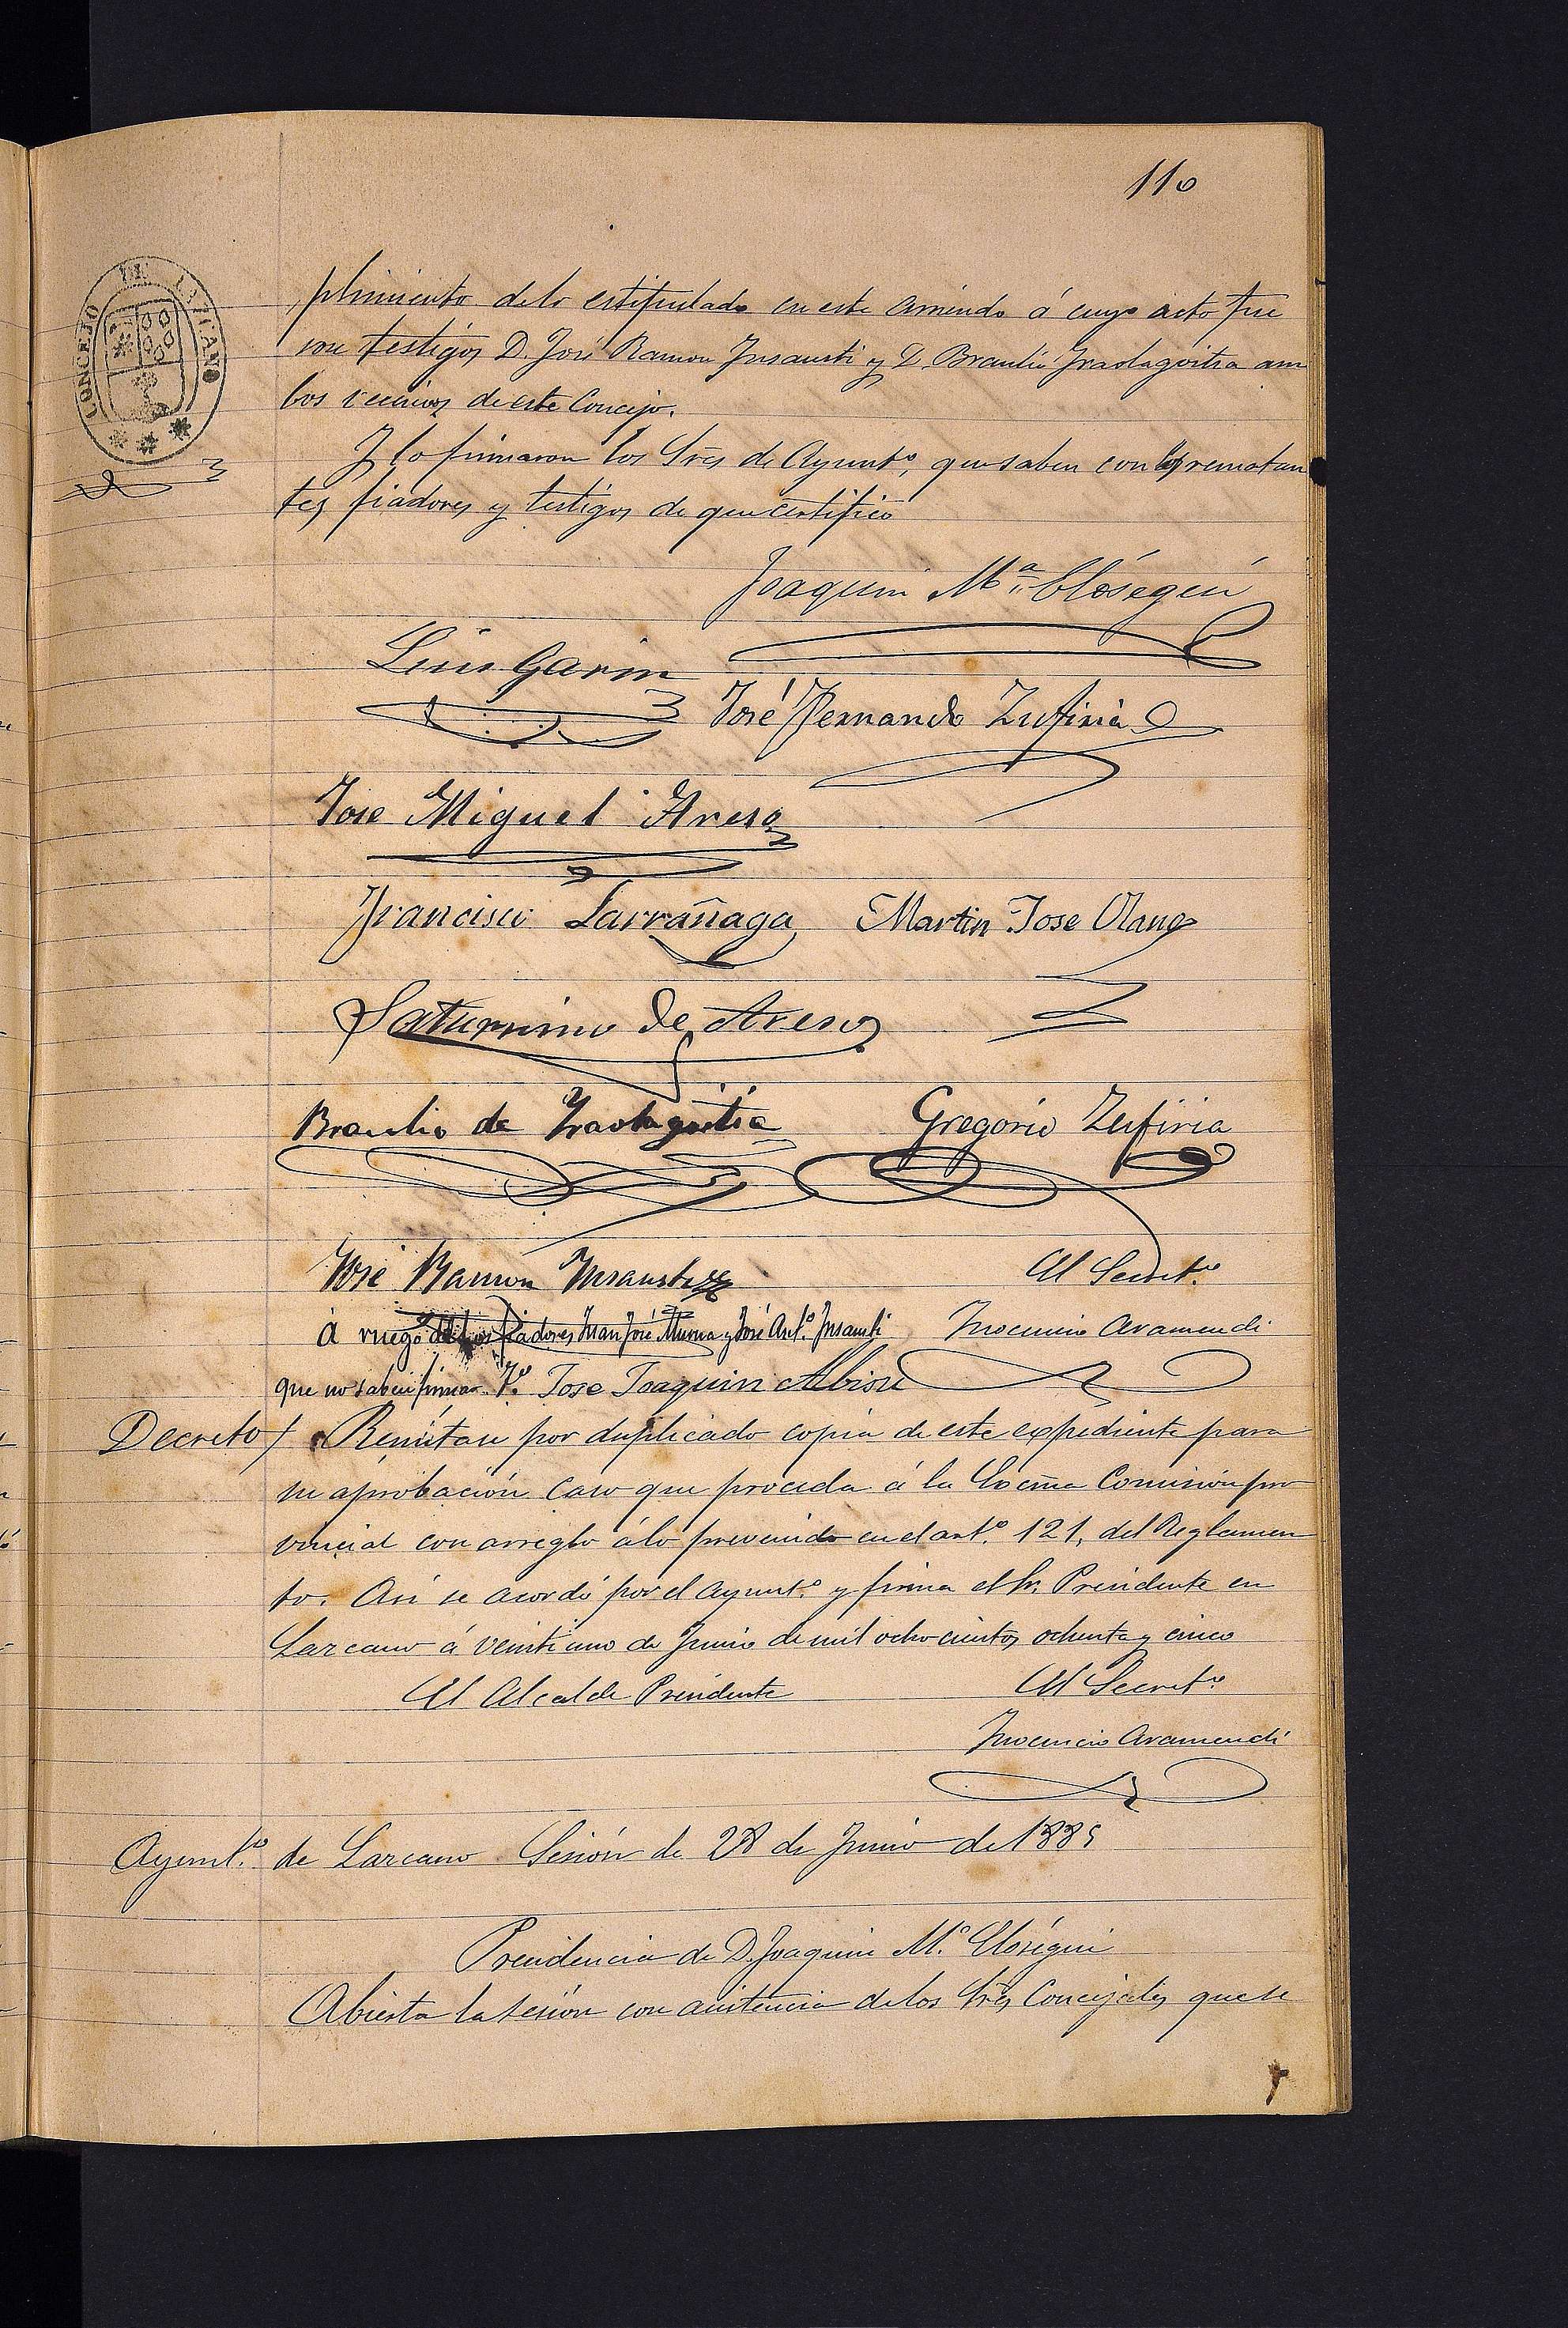 110
CONCEJO DE LAZCANO
plimiento de lo estipulado en este arriendo á cuyo acto fue
ron testigos D. José Ramon Insausti y D. Braulio Iraolagoitia am
bos vecinos de este Concejo.
Y lo firmaron los Srēs de Ayuntº, que saben con los rematan
tes fiadores y testigos de que certifico
Joaquin Mª Elósegui
Luis Garin
José Fernando Zufiria
Jose Miguel Areso
Francisco Larrañaga Martin Jose Olano
Saturnino de Areso
Braulio de Iraolagoitia Gregorio Zufiria
José Ramon Insausti El Secretº
á ruego de los fiadores Juan José Murua y José Antº Insausti Inocencio Aramendi
que no saben firmar Jose Joaquin Albisu
Decreto / Remítase por duplicado copia de este expediente para
su aprobación caso que proceda á la Excma Comisión pro
vincial con arreglo á lo prevenido en el artº 121, del Reglamen
to. Asi se acordó por el ayuntº y firma el Sr. Presidente en
Lazcano á veintiuno de Junio de mil ochocientos ochenta y cinco
El Alcalde Presidente El Secretº
Inocencio Aramendi
Ayuntº de Lazcano Sesión de 28 de Junio de 1885
Presidencia de D. Joaquin Mª Elósegui
Abierta la sesión con asistencia de los Srēs Concejales que se